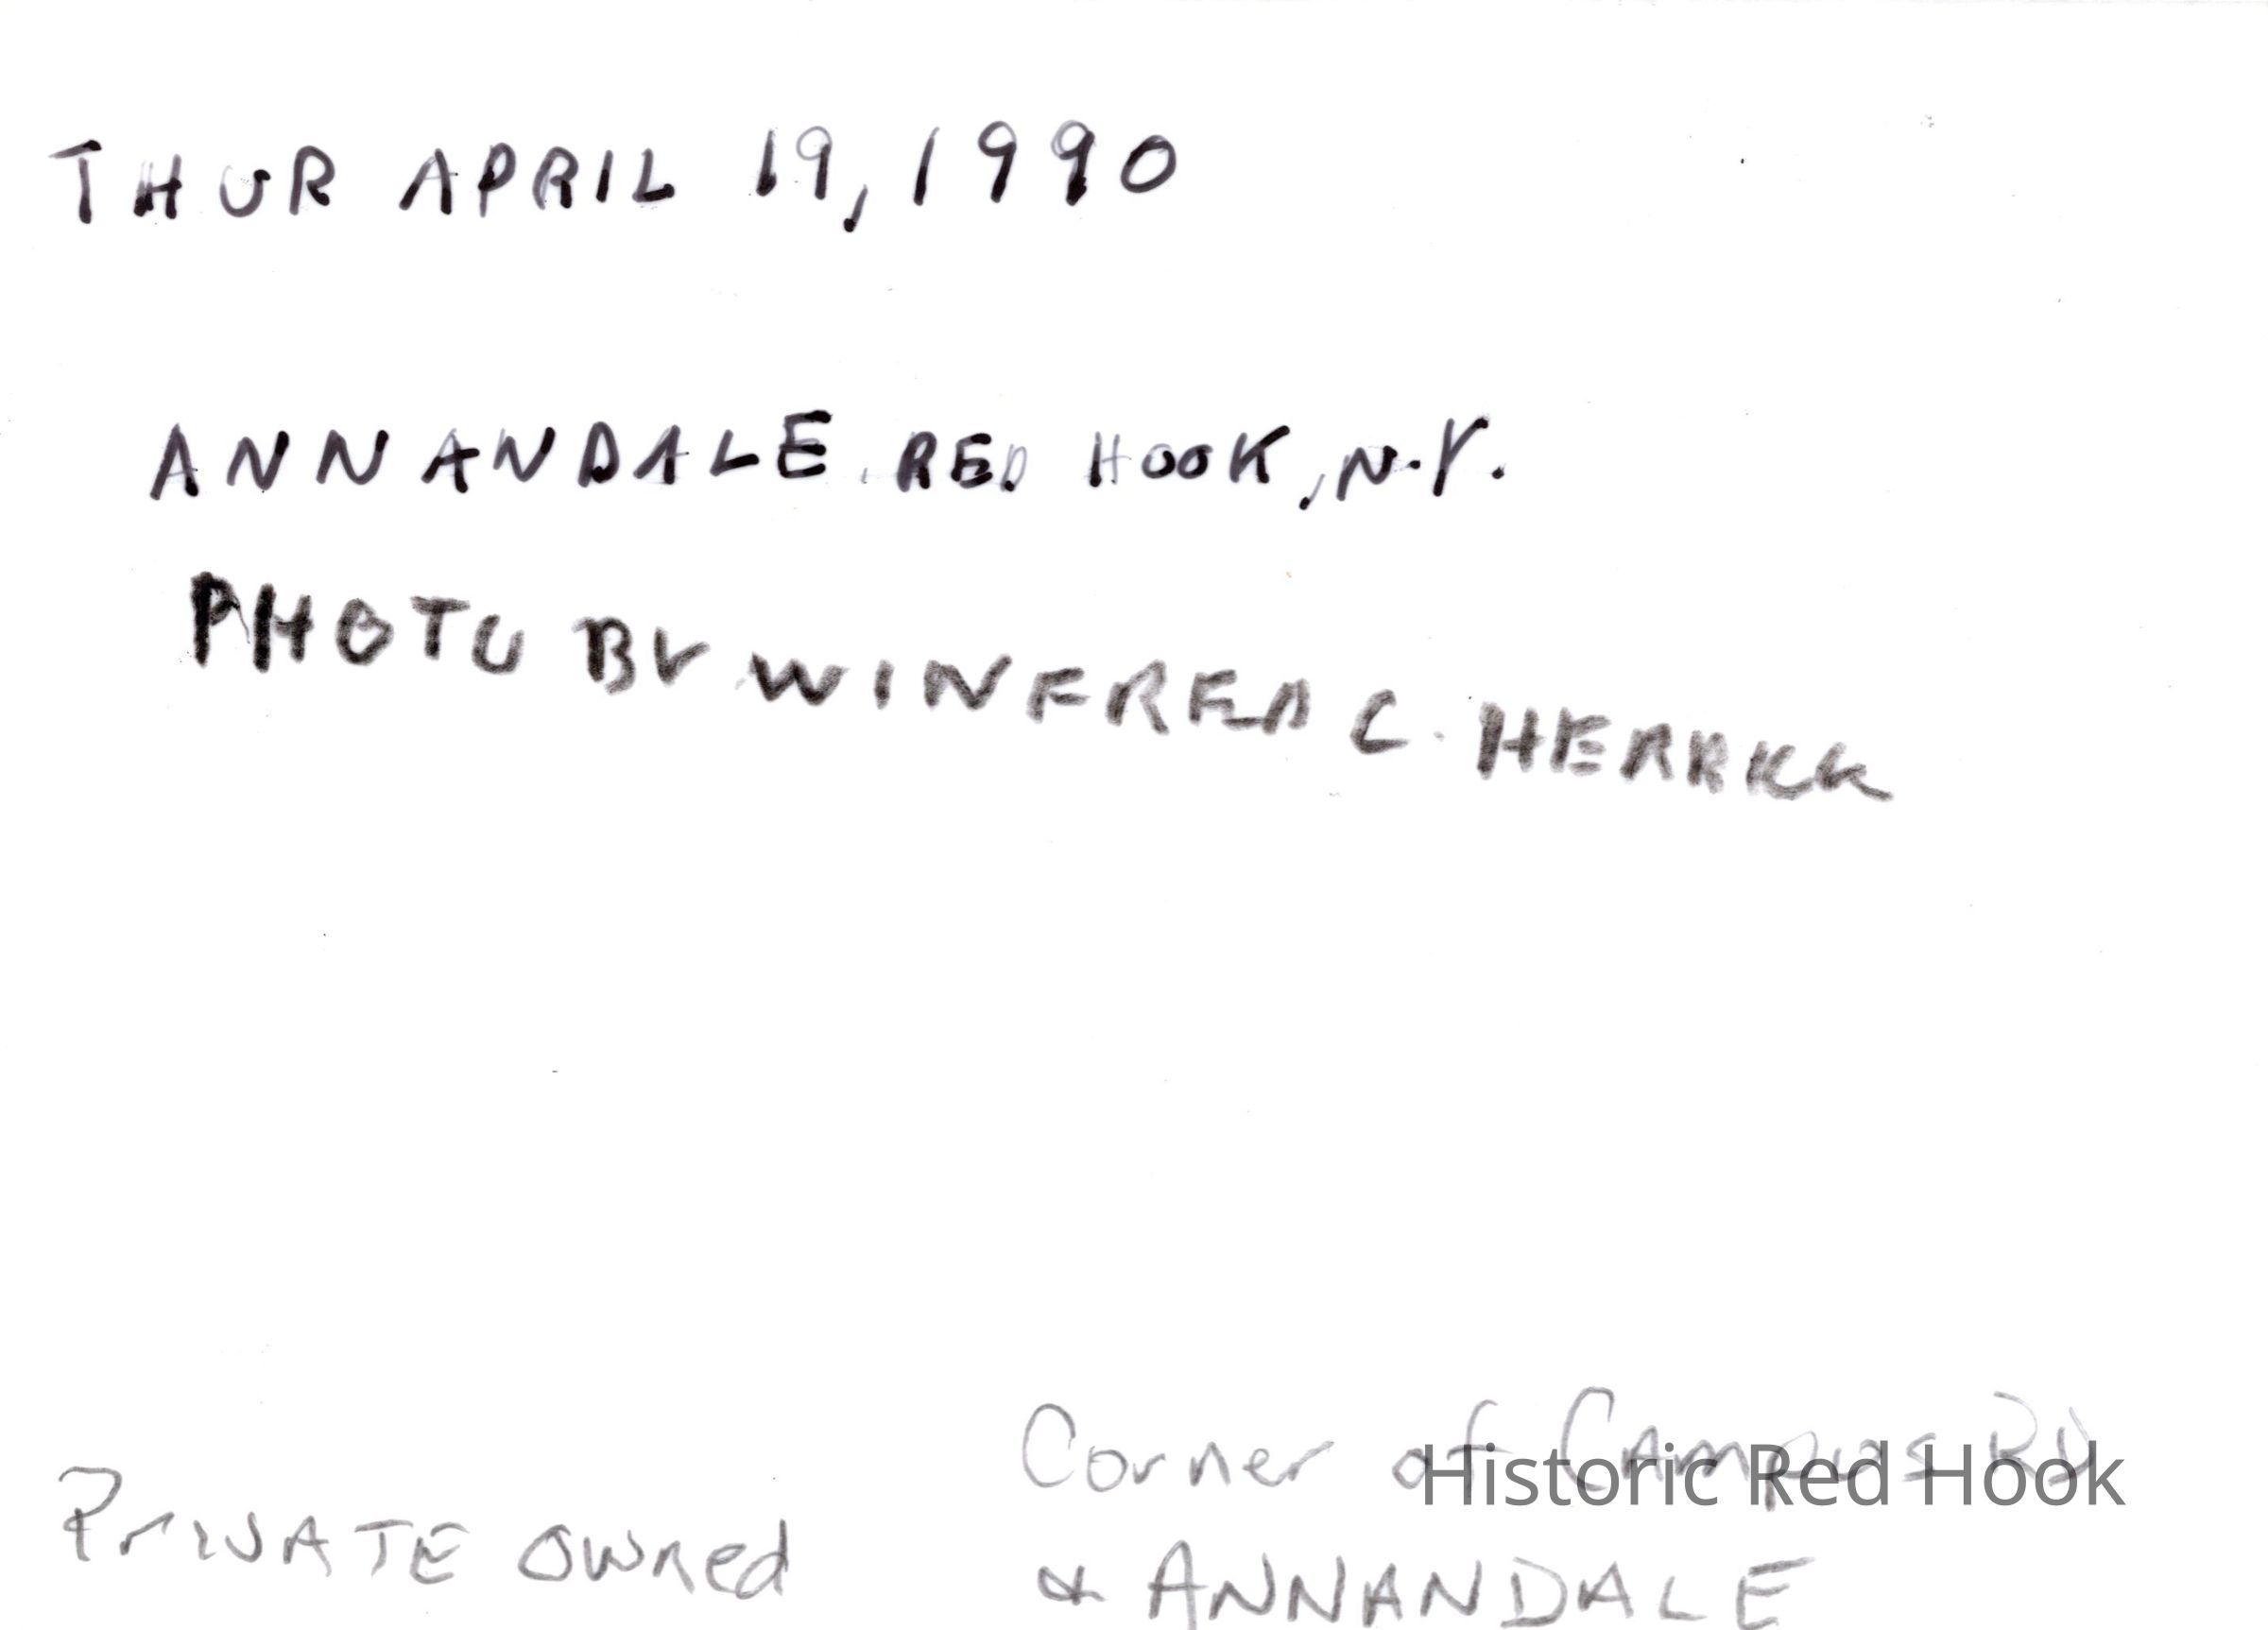 THUR APRIL 19, 1990
ANNANDALE, RED HOOK, N.Y.
PHOTO BY WINFRED C. HERRICK
Corner of Campus Rd
Historic Red Hook
PrIVATE Owned
& ANNANDALE